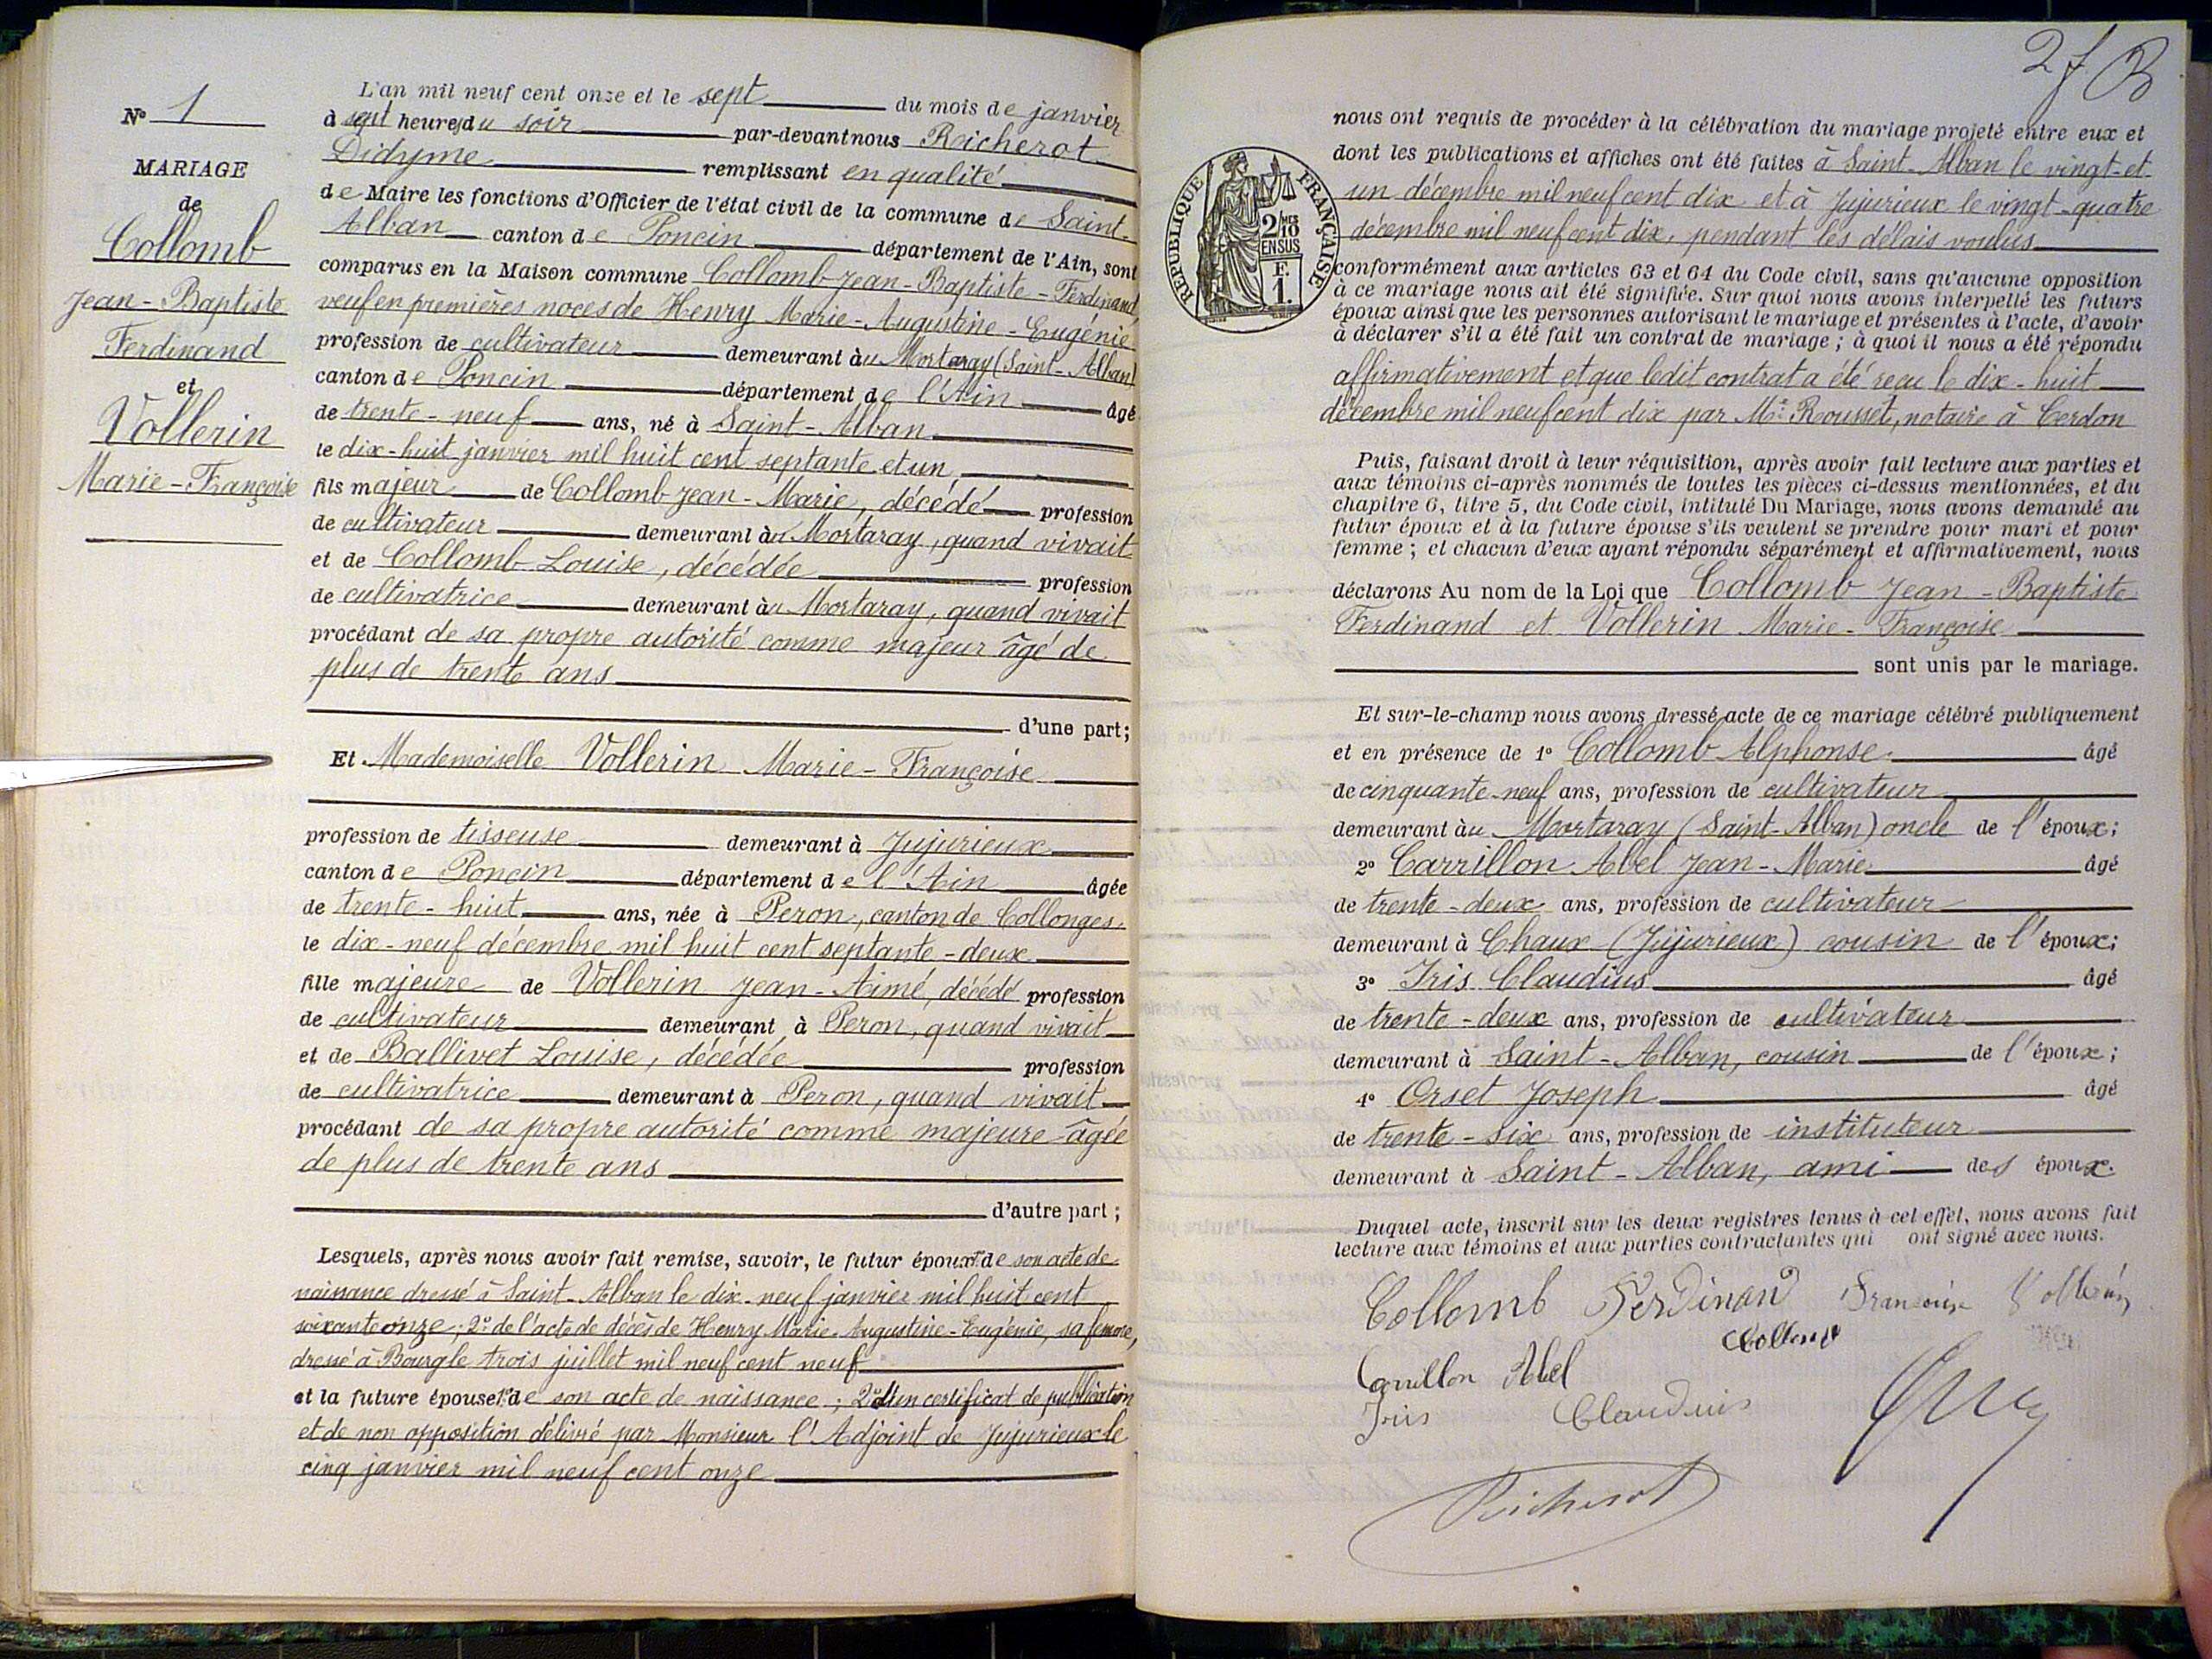 N° 1
MARIAGE
de
Collomb
Jean-Baptiste
Ferdinand
et
Vollerin
Marie-Françoise
L'an mil neuf cent onze et le sept du mois de janvier
à sept heures du soir par-devant nous Reicherot
Didyme remplissant en qualité
de Maire les fonctions d'Officier de l'état civil de la commune de Saint-
Alban canton de Poncin département de l'Ain, sont
comparus en la Maison commune Collomb Jean-Baptiste-Ferdinand,
veuf en premières noces de Henry Marie-Augustine-Eugénie
profession de cultivateur demeurant au Mortaray (Saint-Alban)
canton de Poncin département de l'Ain âgé
de trente-neuf ans, né à Saint-Alban
le dix-huit janvier mil huit cent septante et un
fils majeur de Collomb Jean-Marie, décédé profession
de cultivateur demeurant au Mortaray, quand vivait
et de Collomb Louise, décédée profession
de cultivatrice demeurant au Mortaray, quand vivait
procédant de sa propre autorité comme majeur âgé de
plus de trente ans
d'une part;
Et Mademoiselle Vollerin Marie-Françoise
profession de tisseuse demeurant à Jujurieux
canton de Poncin département de l'Ain âgée
de trente-huit ans, née à Peron, canton de Collonges,
le dix-neuf décembre mil huit cent septante-deux
fille majeure de Vollerin Jean-Aimé, décédé profession
de cultivateur demeurant à Peron, quand vivait
et de Ballivet Louise, décédée profession
de cultivatrice demeurant à Peron, quand vivait
procédant de sa propre autorité comme majeure âgée
de plus de trente ans
d'autre part;
Lesquels, après nous avoir fait remise, savoir, le futur époux 1° de son acte de
naissance dressé à Saint-Alban le dix-neuf janvier mil huit cent
soixante onze; 2° de l'acte de décès de Henry Marie-Augustine-Eugénie, sa femme,
dressé à Bourg le trois juillet mil neuf cent neuf
et la future épouse 1° de son acte de naissance; 2° d'un certificat de publication
et de non opposition délivré par Monsieur l'Adjoint de Jujurieux le
cinq janvier mil neuf cent onze
2 f.
RÉPUBLIQUE FRANÇAISE
2/10 MES
EN SUS
F.
1.
nous ont requis de procéder à la célébration du mariage projeté entre eux et
dont les publications et affiches ont été faites à Saint-Alban le vingt-et-
un décembre mil neuf cent dix et à Jujurieux le vingt-quatre
décembre mil neuf cent dix, pendant les délais voulus
conformément aux articles 63 et 64 du Code civil, sans qu'aucune opposition
à ce mariage nous ait été signifiée. Sur quoi nous avons interpellé les futurs
époux ainsi que les personnes autorisant le mariage et présentes à l'acte, d'avoir
à déclarer s'il a été fait un contrat de mariage; à quoi il nous a été répondu
affirmativement et que ledit contrat a été reçu le dix-huit
décembre mil neuf cent dix par Me Rousset, notaire à Cerdon
Puis, faisant droit à leur réquisition, après avoir fait lecture aux parties et
aux témoins ci-après nommés de toutes les pièces ci-dessus mentionnées, et du
chapitre 6, titre 5, du Code civil, intitulé Du Mariage, nous avons demandé au
futur époux et à la future épouse s'ils veulent se prendre pour mari et pour
femme; et chacun d'eux ayant répondu séparément et affirmativement, nous
déclarons Au nom de la Loi que Collomb Jean-Baptiste
Ferdinand et Vollerin Marie-Françoise
sont unis par le mariage.
Et sur-le-champ nous avons dressé acte de ce mariage célébré publiquement
et en présence de 1° Collomb Alphonse âgé
de cinquante-neuf ans, profession de cultivateur
demeurant au Mortaray (Saint-Alban) oncle de l'époux;
2° Carrillon Abel Jean-Marie âgé
de trente-deux ans, profession de cultivateur
demeurant à Chaux (Jujurieux) cousin de l'époux;
3° Iris Claudius âgé
de trente-deux ans, profession de cultivateur
demeurant à Saint-Alban, cousin de l'époux;
4° Orset Joseph âgé
de trente-six ans, profession de instituteur
demeurant à Saint-Alban, ami des époux.
Duquel acte, inscrit sur les deux registres tenus à cet effet, nous avons fait
lecture aux témoins et aux parties contractantes qui ont signé avec nous.
Collomb Ferdinand Françoise Vollerin
Collomb
Carrillon Abel
Iris Claudius
Reicherot